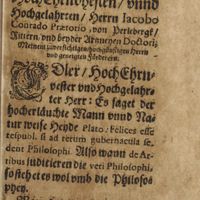 Hoch Ehrnvesten / vnnd
Hochgelahrten / Herrn Iacobo
Conrado Prætorio, von Perlebergk/
Rittern, vnd beyder Artzneyen Doctori,
Meinem zuversichtigen / hochgünstigen Herrn
vnd geneigten Förderern.
EDler / Hoch Ehrn-
vester vnd Hochgelahr-
ter Herr: Es saget der
hocherleuchte Mann vnnd Na-
tur weise Heyde Plato: Felices esse
respubl. si ad rerum gubernacula se-
dent Philosophi. Also wann de Ar-
tibus iudicieren die veri Philosophi,
so stehet es wol vmb die Philoso-
phey.